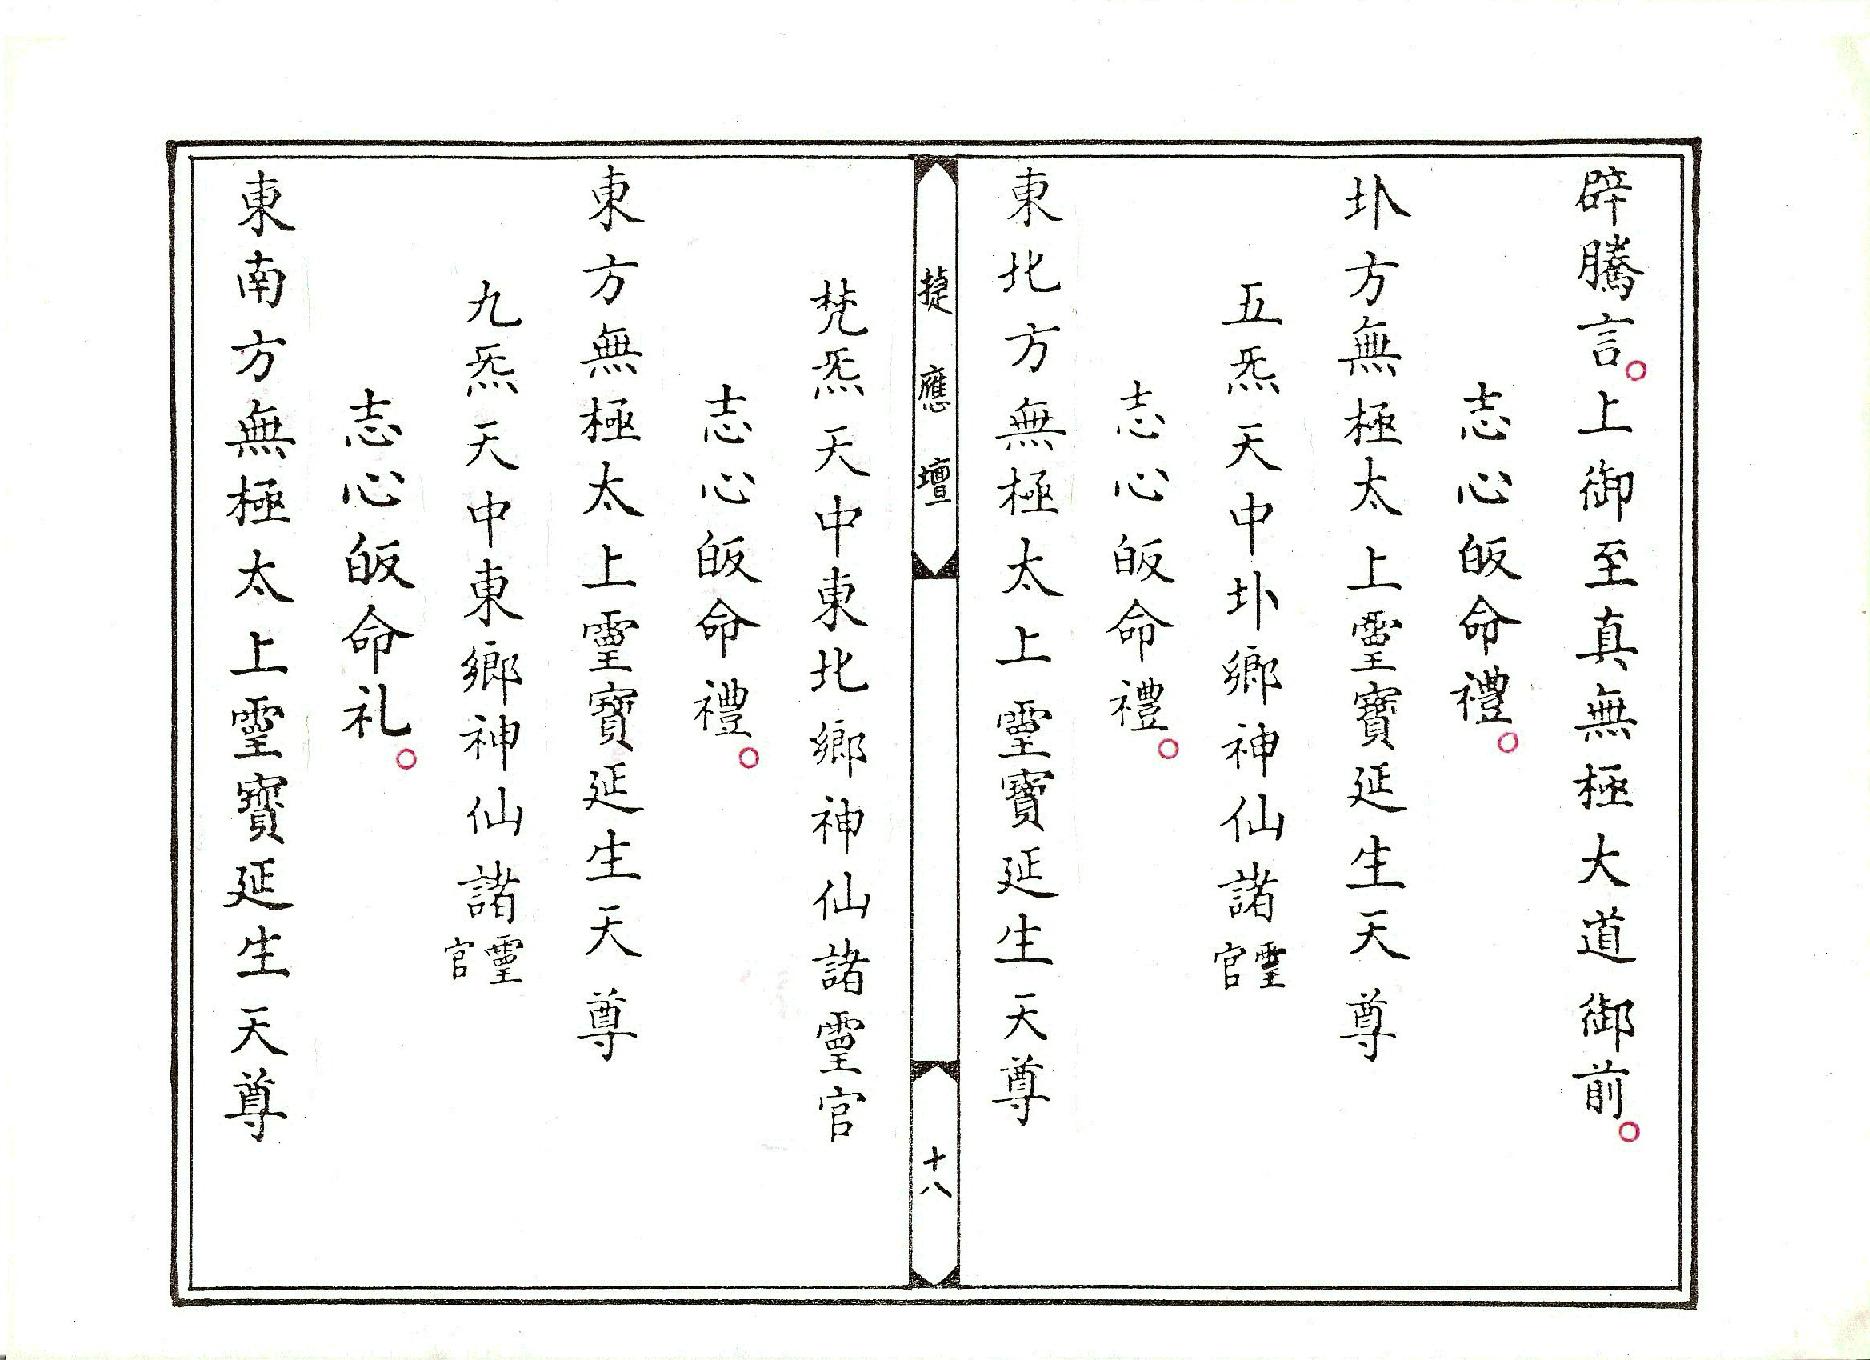 辟騰言。上御至真無極大道御前。
志心皈命禮。
圤方無極太上𤫊寶延生天尊
五炁天中圤鄉神仙諸𤫊官
志心皈命禮。
東北方無極太上𤫊寶延生天尊
捷應壇
十八
梵炁天中東北鄉神仙諸𤫊官
志心皈命禮。
東方無極太上𤫊寶延生天尊
九炁天中東鄉神仙諸𤫊官
志心皈命礼。
東南方無極太上𤫊寶延生天尊